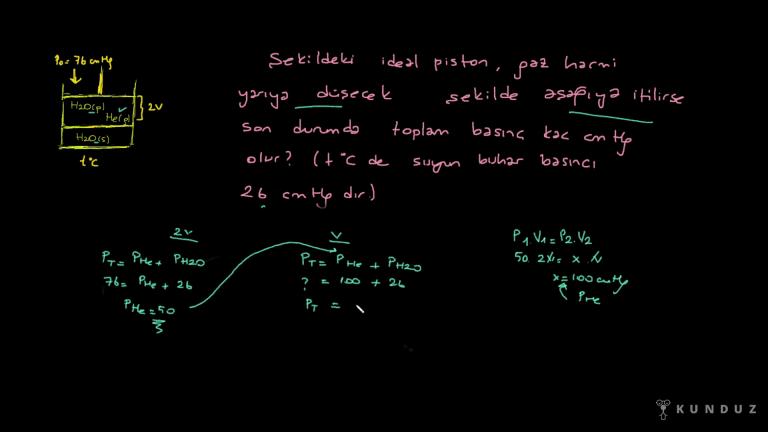 P₀=76 cmHg
H₂O(g)
He(g)
2V
H₂O(s)
t°C
Şekildeki ideal piston, gaz hacmi
yarıya düşecek şekilde aşağıya itilirse
son durumda toplam basınç kaç cmHg
olur? (t°C de suyun buhar basıncı
26 cmHg dır)
2V
P_T = P_He + P_H2O
76 = P_He + 26
P_He = 50
V
P_T = P_He + P_H2O
? = 100 + 26
P_T =
P₁V₁=P₂.V₂
50.2V = x.V
x=100 cmHg
P_He
KUNDUZ